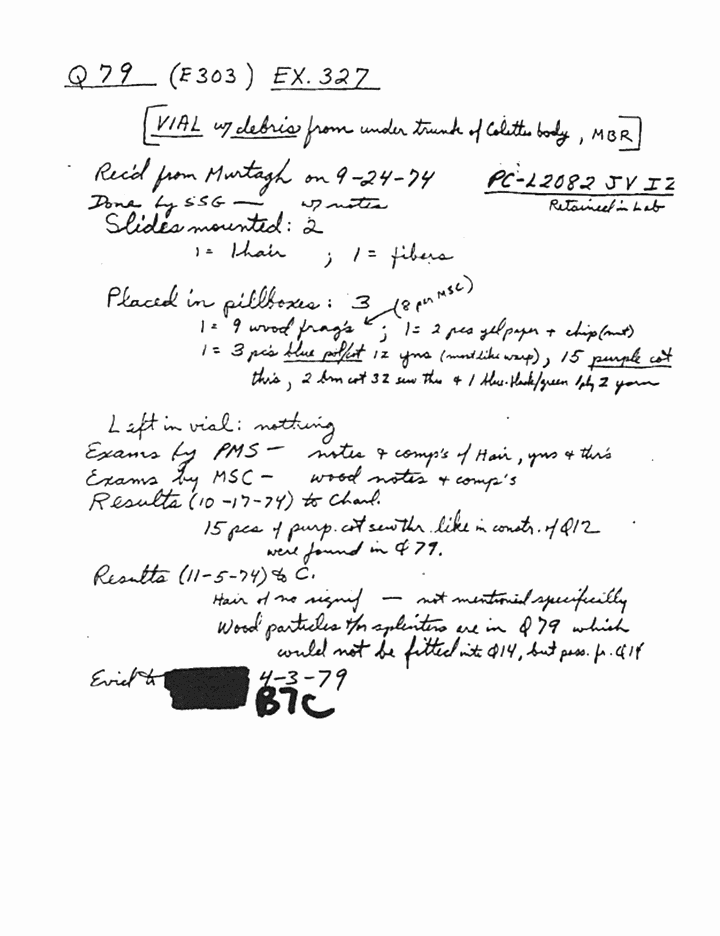 Q 79 (E303) EX. 327
[VIAL w/ debris from under trunk of Colettes body, MBR]
Rec'd from Murtagh on 9-24-74
PC-L2082 JV IZ
Done by SSG — w/ notes
Retained in Lab
Slides mounted: 2
1 = 1 hair ; 1 = fibers
Placed in pillboxes: 3
(8 per MSC)
1 = 9 wood frag's ; 1 = 2 pcs yel paper + chip (mt)
1 = 3 pcs blue pol/cot 12 yns (most like warp), 15 purple cot
thrs, 2 brn cot 32 sew thrs + 1 blue-black/green 1ply Z yarn
Left in vial: nothing
Exams by PMS — notes & comp's of Hair, yns & thrs
Exams by MSC — wood notes & comp's
Results (10-17-74) to Charl.
15 pcs of purp. cot sew thr. like in constr. of Q12
were found in Q79.
Results (11-5-74) to C.
Hair of no signif — not mentioned specifically
Wood particles &/or splinters are in Q79 which
could not be fitted into Q14, but poss. fr. Q14
Evid to 4-3-79
B7C